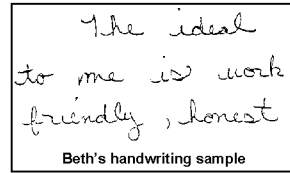 The ideal
to me is work
friendly, honest
Beth's handwriting sample